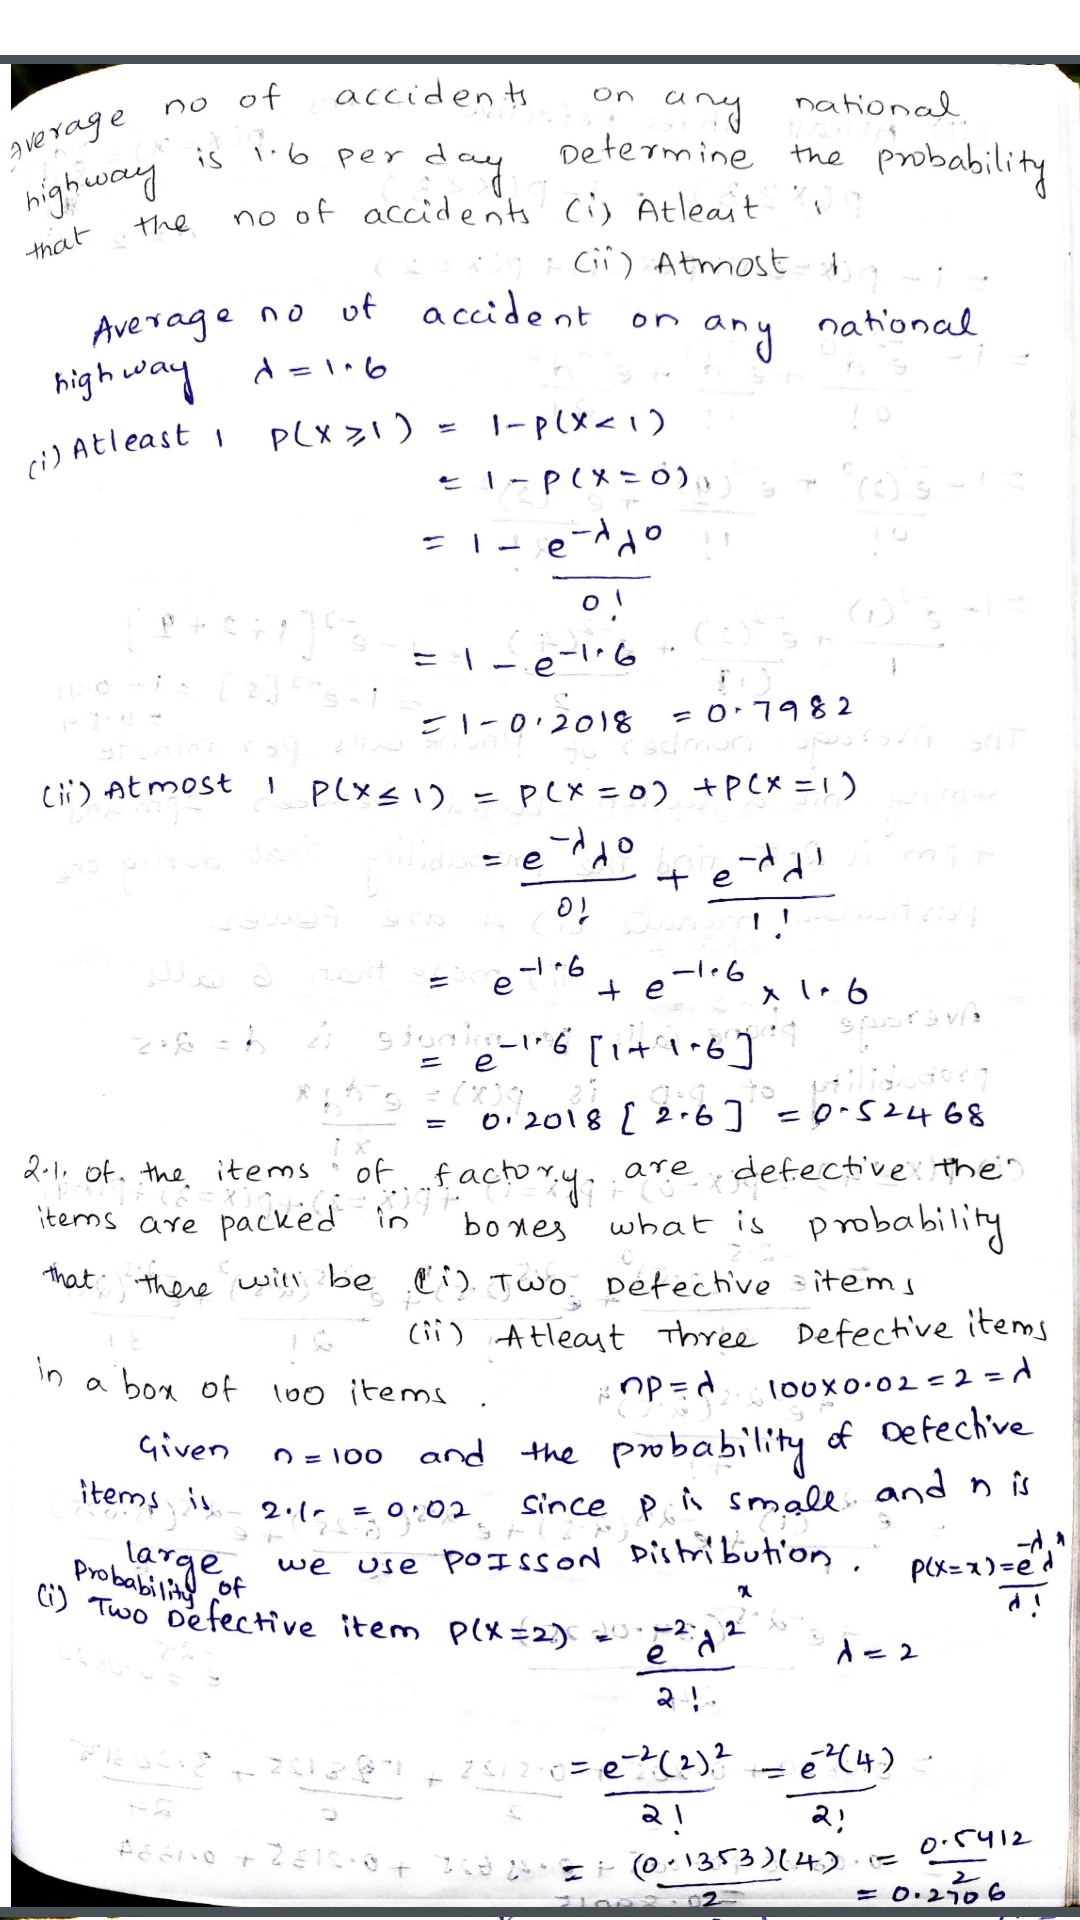 average no of accidents on any national
highway is 1.6 per day Determine the probability
that the no of accidents (i) Atleast 1
(ii) Atmost 1
Average no of accident on any national
highway λ = 1.6
(i) Atleast 1 P(X ≥ 1) = 1-P(X < 1)
= 1 - P(X = 0)
= 1 - e^-λ λ^0 / 0!
= 1 - e^-1.6
= 1 - 0.2018 = 0.7982
(ii) Atmost 1 P(X ≤ 1) = P(X = 0) + P(X = 1)
= e^-λ λ^0 / 0! + e^-λ λ^1 / 1!
= e^-1.6 + e^-1.6 x 1.6
= e^-1.6 [1 + 1.6]
= 0.2018 [2.6] = 0.52468
2.1. of the items of factory are defective the
items are packed in boxes what is probability
that there will be (i) Two Defective items
(ii) Atleast Three Defective items
in a box of 100 items. np = λ 100x0.02 = 2 = λ
Given n = 100 and the probability of Defective
items is 2.1. = 0.02 Since p is small and n is
large we use POISSON Distribution. P(X=x) = e^-λ λ^x / λ!
Probability of
(i) Two Defective item P(X=2) = e^-2 λ^2 / 2! λ = 2
x
= e^-2 (2)^2 / 2! = e^-2 (4) / 2!
= (0.1353)(4) / 2 = 0.5412 / 2
= 0.2706